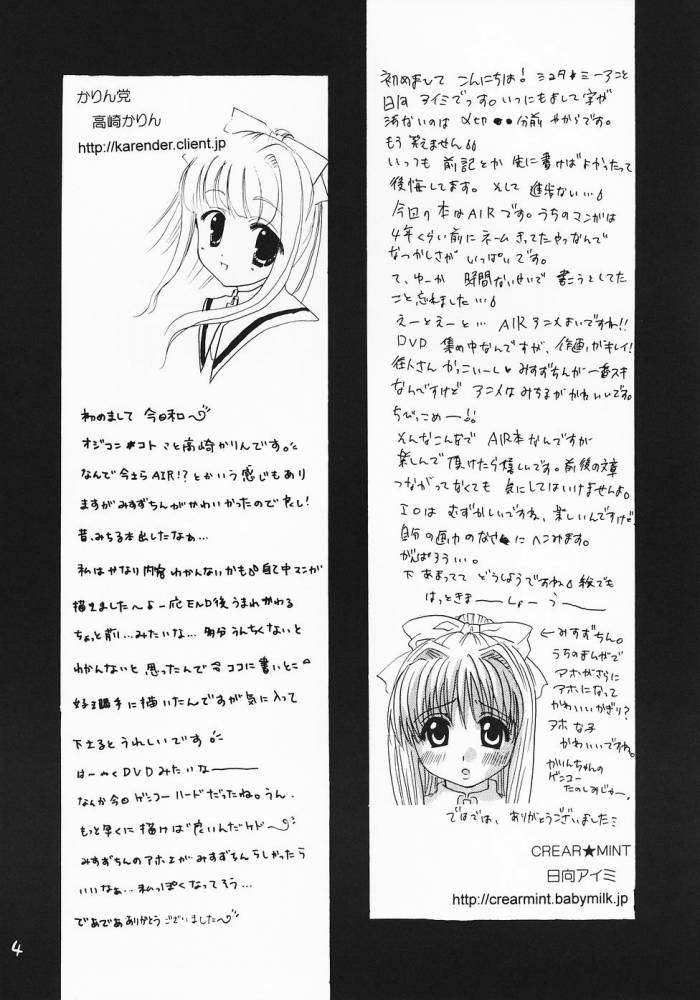 かりん党
高崎かりん
http://karender.client.jp
初めまして 今日和
オジコン★コト こと高崎かりんです。
なんで今さらAIR!?とかいう感じもあり
ますがみすずちんがかわいかったので良し!
昔、みちる本出したなぁ…
私はせなり内容わかんないかも 自己中マンガ
描きました〜よ 一応END後うまれかわる
ちょっと前…みたいな… 多分うんちくないと
わかんないと 思ったんで今ココに書いとこ
好き勝手に描いたんですが気に入って
下さるとうれしいです。
はーやくDVDみたいなー
なんか今回ゲンコーハードだったね。うん。
もっと早くに描けば良いんだケド
みすずちんのアホさがみすずちんらしかったら
いいなぁ… 私っぽくなってそう…
であであ ありがとうございました〜
初めまして こんにちは! ミユタ★ミーアこと
日向 アイミでっす。いつにもまして字が
汚ないのは 〆切●●分前 やからです。
もう笑えません
いっつも 前記とか 先に書けばよかったって
後悔してます。そして 進歩ない…
今回の本はAIRです。うちのマンガは
4年くらい前にネームきってたやつなんで
なつかしさが いっぱいです。
て、ゆーか 時間ないせいで 書こうとしてた
こと忘れました…
えーとえーと… AIRアニメよいですね!!
DVD 集め中なんですが、作画がキレイ!
往人さん かっこいーし♥ みすずちんが一番スキ
なんですけど アニメはみちるがかわいいです。
ちびっこめー!!
そんなこんなで AIR本なんですが
楽しんで頂けたら嬉しいです。前後の文章
つながってなくても 気にしてはいけませんよ。
エロは むずかしいですね、楽しいんですけど
自分の画力のなさにヘこみます。
がんばろうぃ。
下 あまってて どうしようですね 絵でも
はっときまーしょーう
←みすずちん。
うちのまんがで
アホがさらに
アホになって
かわいいかぎり?
アホな子
かわいいですね。
かりんちゃんの
ゲンコー
たのしみじゃー。
ではでは、ありがとうございました
CREAR★MINT
日向アイミ
http://crearmint.babymilk.jp
4